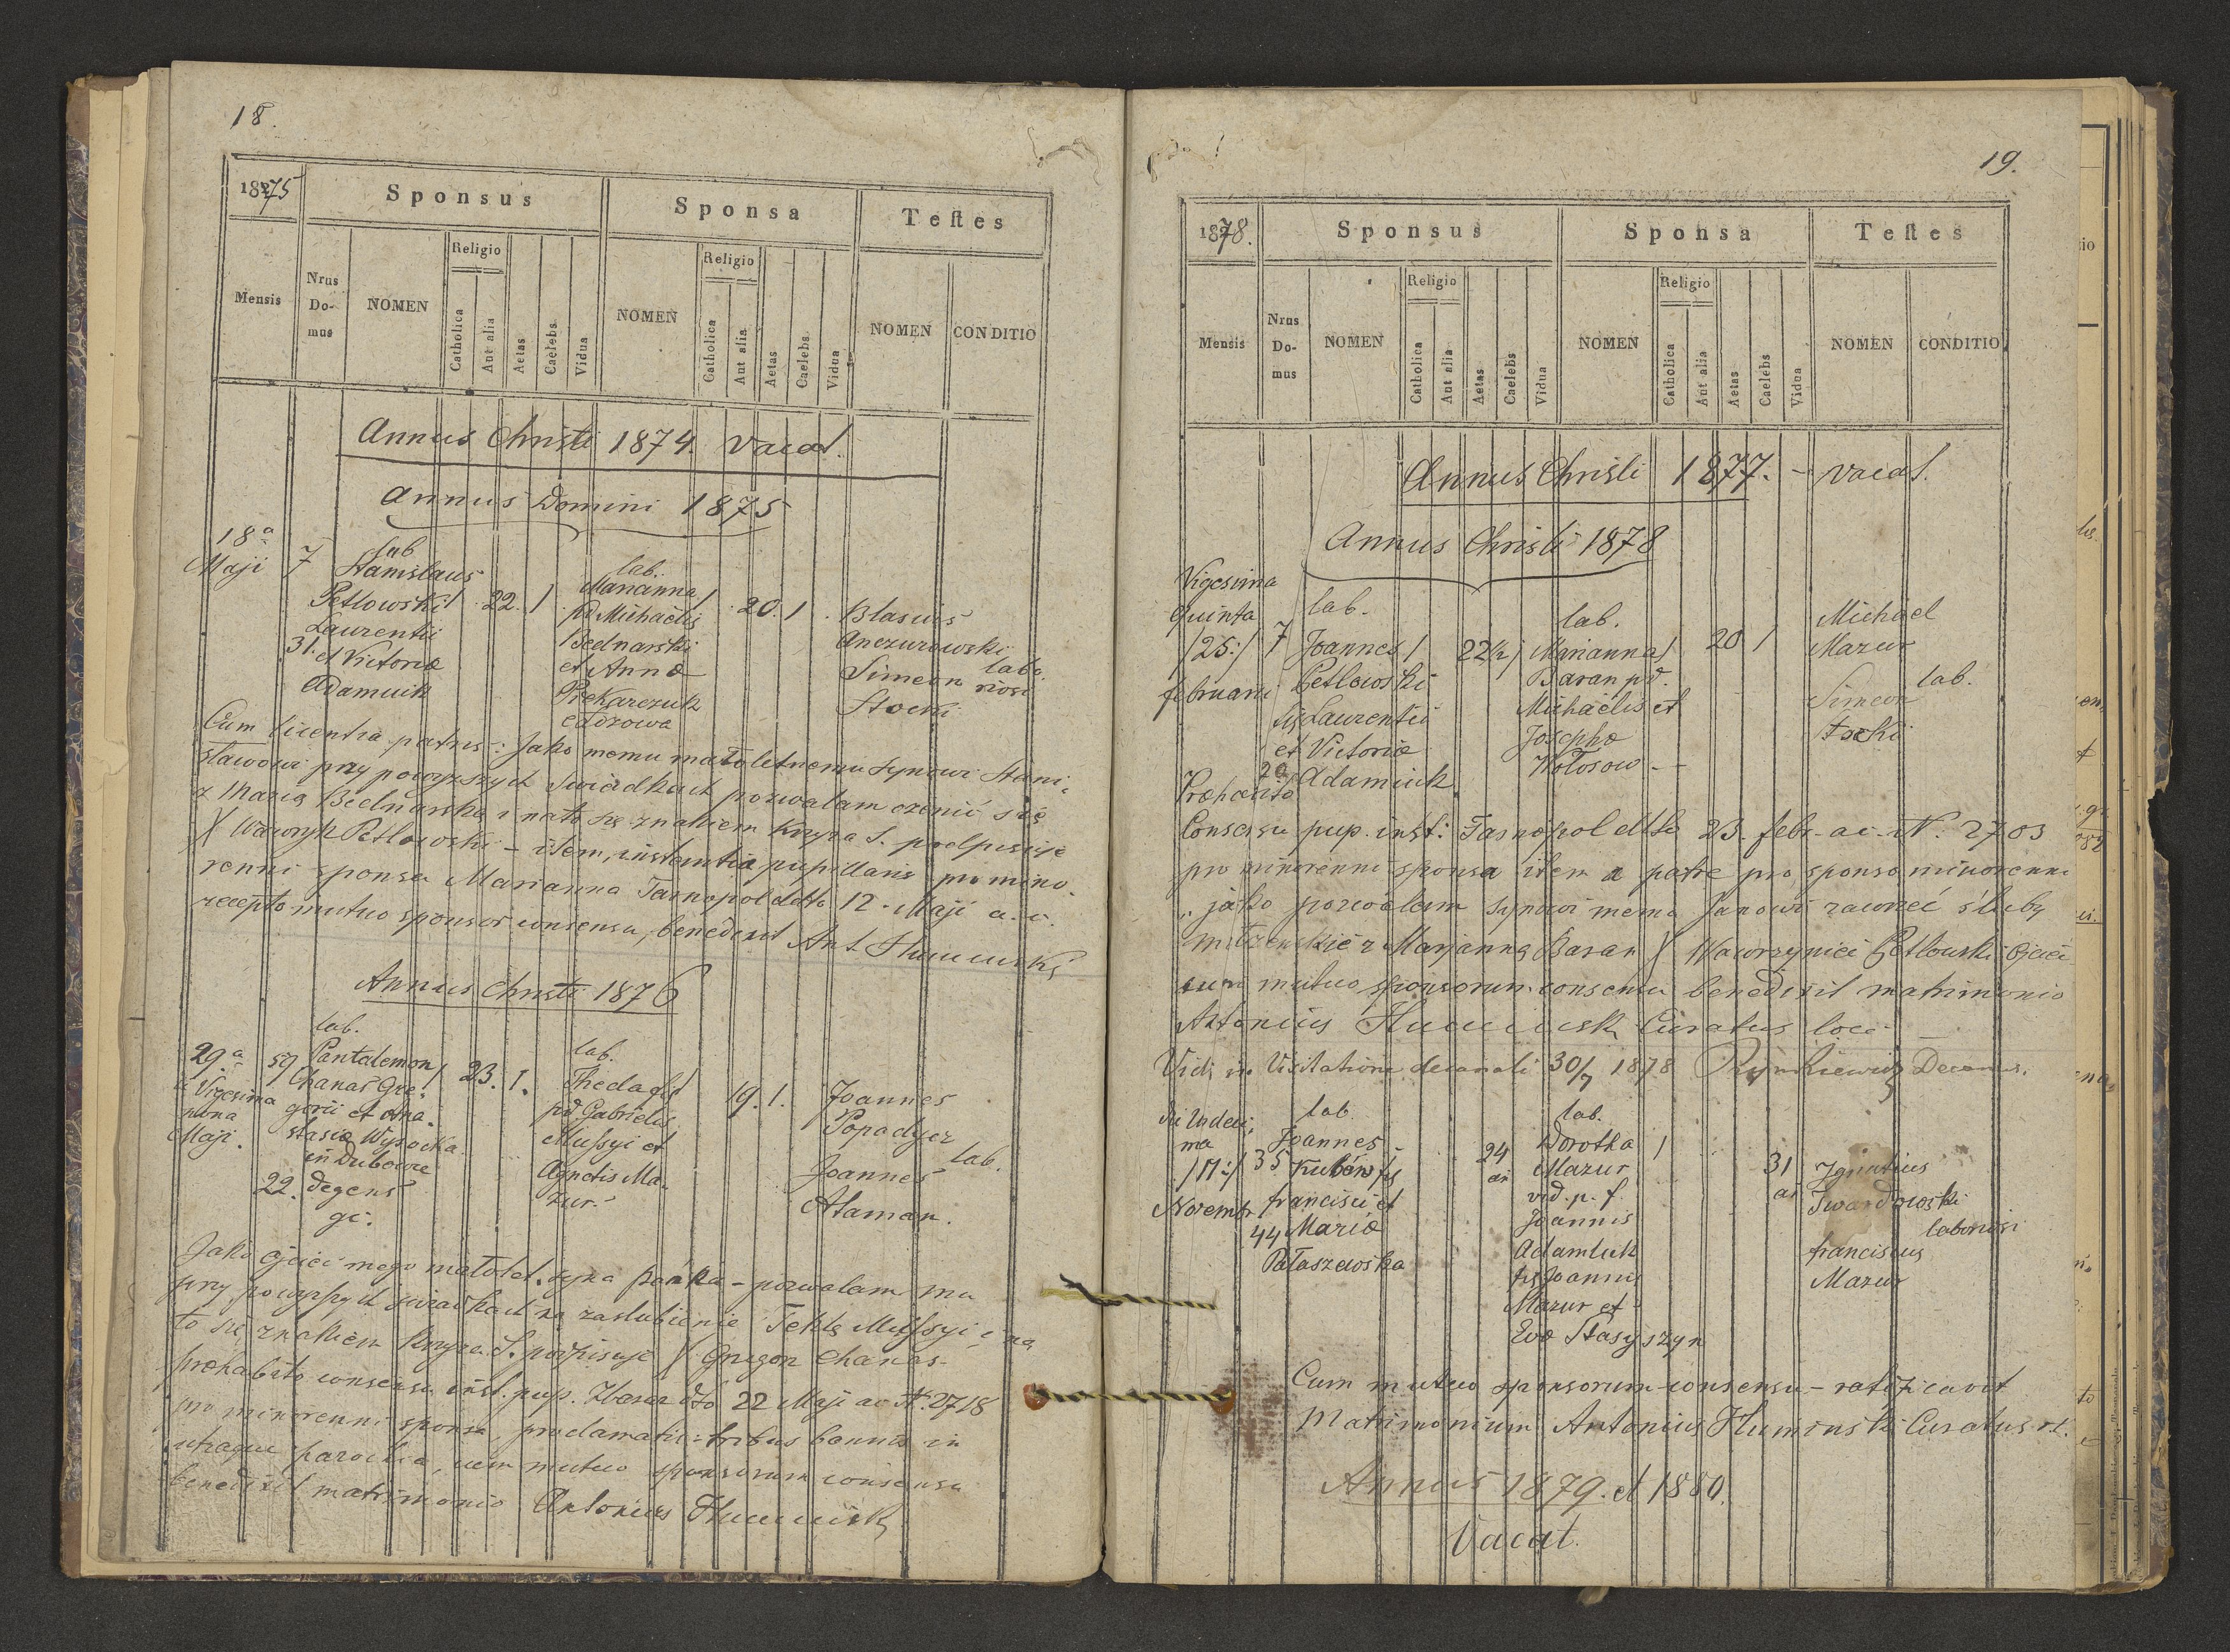 18.
1875
Sponsus
Sponsa
Testes
Mensis
Nrus Do- mus
NOMEN
Religio
Catholica
Aut alia
Aetas
Caelebs
Vidua
NOMEN
Religio
Catholica
Aut alia
Aetas
Caelebs
Vidua
NOMEN
CONDITIO
Annus Christi 1874. Vacat.
Annus Domini 1875
18a
Maji 7
lab
Stanislaus
Petlowski / 22. /
Laurentii
31. et Victoriæ
Adamiuk
lab.
Marianna /
pd Michaëlis
Bednarski
et Annæ
Piekarczuk
20. /
Blasius
Anczurowski
Simeon
Stocki
labo
riosi
Cum licentia patris: Jako memu małoletnemu synowi Stani-
sławowi przy powyższych świadkach pozwalam ożenić się
z Maryą Bednarską i na to się znakiem krzyża S. podpisuję
X Wawryk Petlowski – item, instantia pupillaris pro mino-
renni sponsa Marianna Tarnopol ddto 12. Maji a. c.
recepto mutuo sponsor consensu, benedixit Ant Huminski
Annus Christi 1876
29a 59
Vigesima
nona
Maji.
lab.
Pantalemon /
Chanas Gre-
gorii et Ana-
stasiæ Wysocka
in Dubowce
22. degens
gc.
23. 1.
lab.
Thecla fil /
pd Gabrielis
Mussyi et
Agnetis Ma-
zur.
19. 1.
Joannes
Popadycz
Joannes
Ataman.
lab.
Jako ojciec mego małolet. syna Pańka – pozwalam mu
przy powyższych świadkach na zaslubienie Teklę Mussyi i na
to się znakiem krzyża S. podpisuję X Gregor Chanas –
præhabito consensu inst. pup. Zbaraz ddto 22 Maji ac N. 2718
pro minorenni sponsa, proclamatis tribus bannis in
utraque parochia, cum mutuo sponsorum consensu
benedixit matrimonio Antonius Huminski
19.
1878.
Sponsus
Sponsa
Testes
Mensis
Nrus Do- mus
NOMEN
Religio
Catholica
Aut alia
Aetas
Caelebs
Vidua
NOMEN
Religio
Catholica
Aut alia
Aetas
Caelebs
Vidua
NOMEN
CONDITIO
Annus Christi 1877. – vacat.
Annus Christi 1878
Vigesima
quinta
/25:/ 7
februarii
lab.
Joannes / 22½ /
Petlowski
fs Laurentii
et Victoriæ
29 Adamiuk
lab.
Marianna /
Baran pd.
Michaëlis et
Josephæ
Wołosow –
20 /
Michael
Mazur
Simeon
Stocki
lab.
Præhabito
Consensu pup. inst: Tarnopol ddto 23. febr. ac. N. 2703
pro minorenni sponsa item a patre pro sponso minorenni
„ jako pozwalam synowi memu Janowi zawrzeć śluby
małżenskie z Marjanną Baran X Wawrzyniec Petlowski Ojciec
cum mutuo sponsorum consensu benedixit matrimonio
Antonius Huminski Curatus loci
Vidi in Visitatione decanali 30/7 1878 Decanus.
Undeci-
ma
/11:/ 35
Novembr
lab
Joannes
Kubów fs
francisci et
44 Mariæ
Pałaszewska
24
an
lab.
Dorothea /
Mazur
vid. p. f.
Joannis
Adamiuk
fs Joannis
Mazur et
Evæ Stasyszyn
31
an
Ignatius
Twardowski
franciscus
Mazur
laboriosi
Cum mutuo sponsorum consensu – ratificavit
Matrimonium Antonius Huminski Curatus
Annus 1879. et 1880.
Vacat.